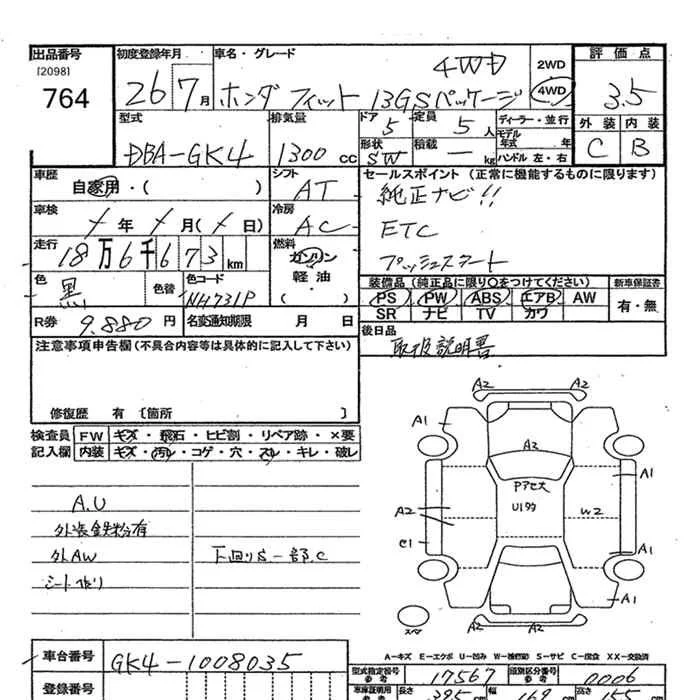 出品番号
[2098]
764
初度登録年月
26 7月
車名・グレード
ホンダ フィット 13GSパッケージ
4WD
2WD
4WD
評価点
3.5
外装 内装
C B
型式
DBA-GK4
排気量
1300 cc
ドア 5
定員 5人
形状 SW
積載 — kg
ディーラー・並行
モデル年式 年
ハンドル 左・右
車歴
自家用・( )
シフト
AT
車検
/年 /月(/日)
冷房
AC
走行
18万6千673km
燃料
ガソリン
軽油
( )
色
黒
色替
色コード
NH731P
R券 9.880円
名変通知期限 月 日
セールスポイント (正常に機能するものに限ります)
純正ナビ!!
ETC
プッシュスタート
装備品 (純正品に限り○をつけてください)
新車保証書
PS PW ABS エアB AW
SR ナビ TV カワ
有・無
後日品
取扱説明書
注意事項申告欄(不具合内容等は具体的に記入して下さい)
修復歴 有 [箇所 ]
検査員 FW キズ・飛石・ヒビ割・リペア跡・×要
記入欄 内装 キズ・汚レ・コゲ・穴・スレ・キレ・破レ
A.U
外装鉄粉有
外AW
下回りS一部.C
A2
A2
A1
A2
Pアセ大
U1多
A1
A2
W2
C1
A1
A1
スペ
A2
A2
A-キズ E-エクボ U-凹み W-補修跡 S-サビ C-腐食 XX-交換済
車台番号
GK4-1008035
登録番号
型式指定番号
参考
17567
類別区分番号
参考
0006
車庫証明用
参考
長さ
395cm
幅
169cm
高さ
155cm